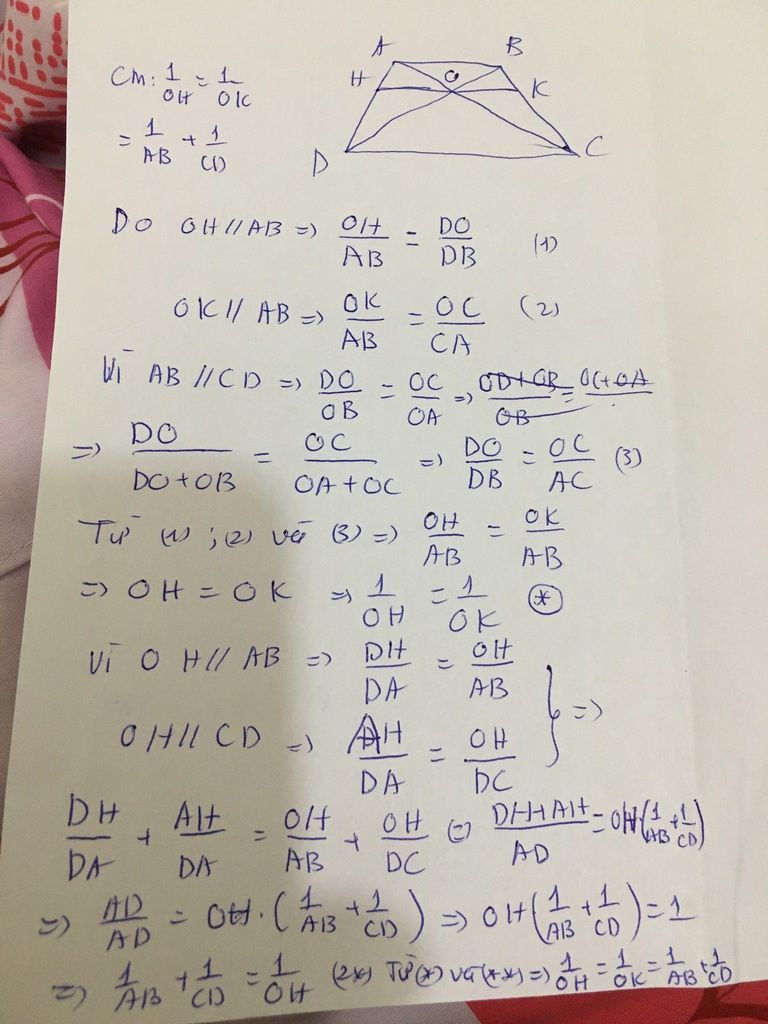 A B
H O K
D C
Cm: 1/OH = 1/OK
= 1/AB + 1/CD
Do OH // AB => OH/AB = DO/DB (1)
OK // AB => OK/AB = OC/CA (2)
Vì AB // CD => DO/OB = OC/OA =>
=> DO/(DO+OB) = OC/(OA+OC) => DO/DB = OC/AC (3)
Từ (1) ; (2) và (3) => OH/AB = OK/AB
=> OH = OK => 1/OH = 1/OK (*)
Vì OH // AB => DH/DA = OH/AB
OH // CD => AH/DA = OH/DC } =>
DH/DA + AH/DA = OH/AB + OH/DC (=) (DH+AH)/AD = OH(1/AB + 1/CD)
=> AD/AD = OH.(1/AB + 1/CD) => OH(1/AB + 1/CD) = 1
=> 1/AB + 1/CD = 1/OH (2*) Từ (*) và (**) => 1/OH = 1/OK = 1/AB + 1/CD